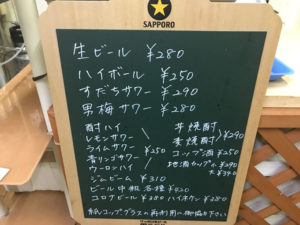 SAPPORO
生ビール ¥280
ハイボール ¥250
すだちサワー ¥290
男梅サワー ¥280
酎ハイ
レモンサワー
ライムサワー
青リンゴサワー
ウーロンハイ
¥250
ジムビーム ¥310
ビール中瓶各種 ¥420
コロナビール ¥380
芋焼酎
麦焼酎
¥290
コップ酒 ¥250
地酒カップ ¥290
大 ¥390
ハイホケン ¥280
紙コップ、グラスの再利用ご御協力下さい